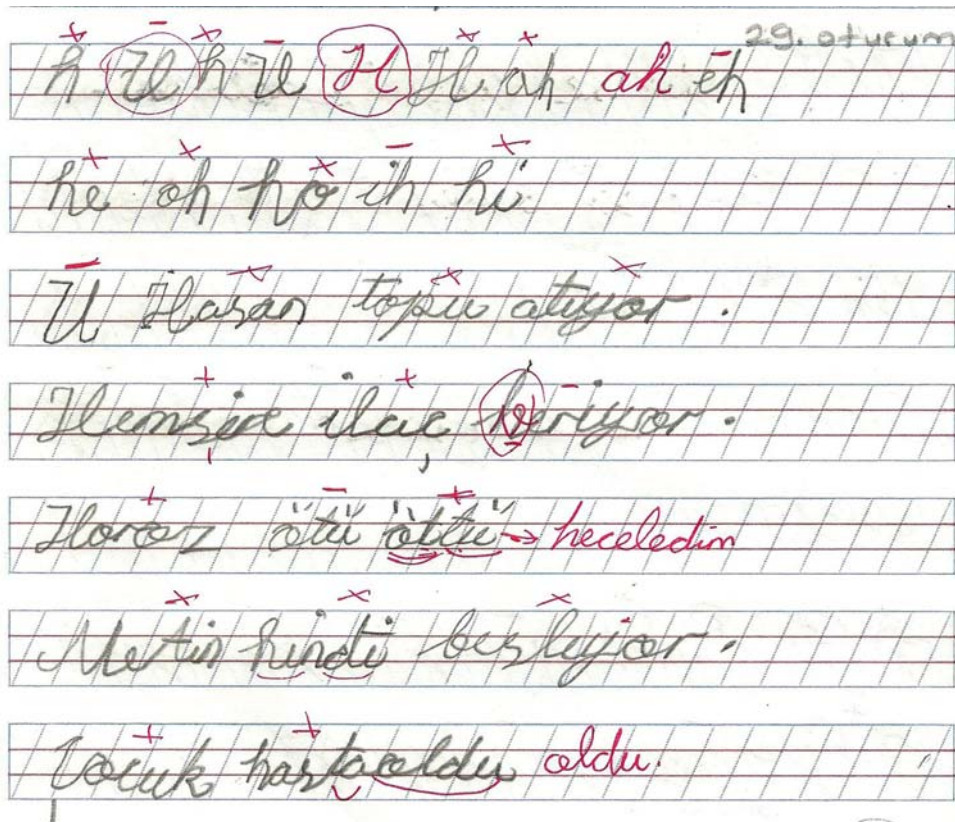 29. oturum
h U h U H H ah ah eh
he oh ho ih hi
U Hasan topu atıyor .
Hemşire ilaç veriyor .
Horoz ötü öttü → heceledim
Metin hindi besliyor .
Çocuk hasta oldu oldu.